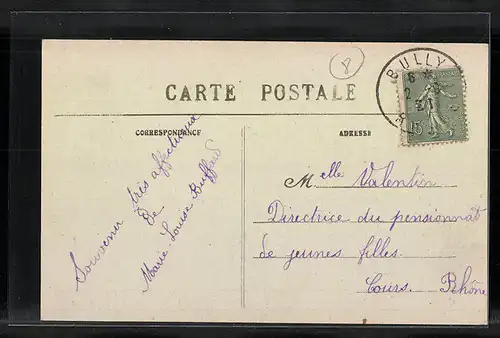 8
BULLY
CARTE POSTALE
15
CORRESPONDANCE
ADRESSE
Souvenir très affectueux
de
Marie-Louise Buffard
Melle Valentin
Directrice du pensionnat
de jeunes filles.
Cours. Rhône